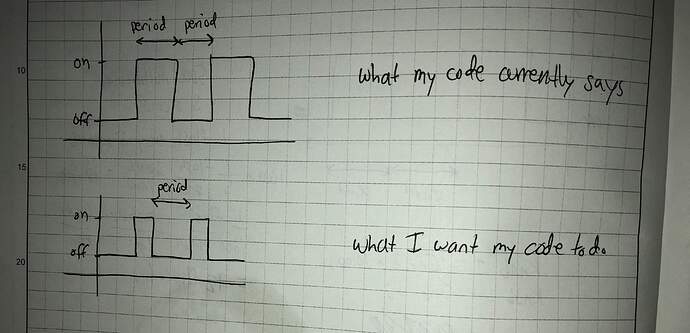 period period
on
10
what my code currently says
off
15
period
on
what I want my code to do.
off
20